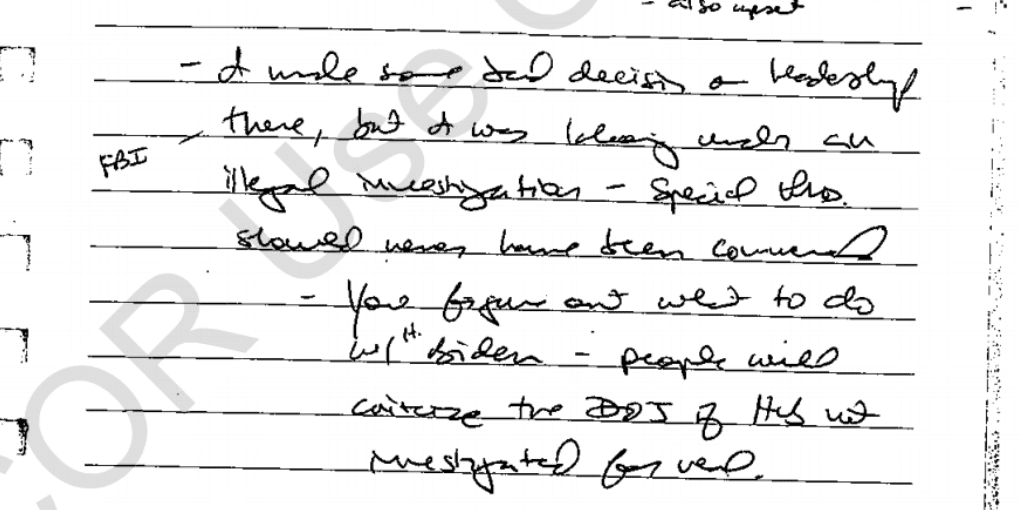 - also upset -
- I made some bad decisions on leadership
there, but I was laboring under an
FBI
illegal investigation - Special Pros.
should never have been commenced
- You figure out what to do
w/ H. Biden - people will
criticize the DOJ if He's not
investigated for real.
FOR USE O